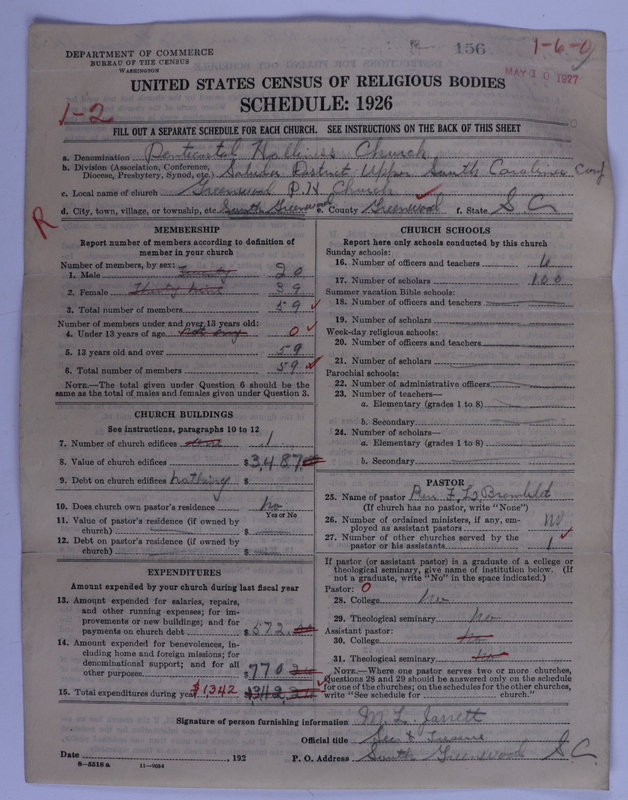 DEPARTMENT OF COMMERCE
BUREAU OF THE CENSUS
WASHINGTON
156
1-6-0
MAY 10 1927
UNITED STATES CENSUS OF RELIGIOUS BODIES
SCHEDULE: 1926
1-2
FILL OUT A SEPARATE SCHEDULE FOR EACH CHURCH. SEE INSTRUCTIONS ON THE BACK OF THIS SHEET
a. Denomination Pentecostal Holiness Church
b. Division (Association, Conference, Diocese, Presbytery, Synod, etc.) Saluda District Upper South Carolina Conf
c. Local name of church Greenwood P.H. Church
d. City, town, village, or township, etc. South Greenwood e. County Greenwood f. State S C
R
MEMBERSHIP
Report number of members according to definition of member in your church
Number of members, by sex:
1. Male Twenty 20
2. Female Thirty nine 39
3. Total number of members 59
Number of members under and over 13 years old:
4. Under 13 years of age Not any 0
5. 13 years old and over 59
6. Total number of members 59
NOTE.—The total given under Question 6 should be the same as the total of males and females given under Question 3.
CHURCH BUILDINGS
See instructions, paragraphs 10 to 12
7. Number of church edifices 1
8. Value of church edifices $3,487
9. Debt on church edifices nothing $
10. Does church own pastor's residence No
Yes or No
11. Value of pastor's residence (if owned by church) $
12. Debt on pastor's residence (if owned by church) $
EXPENDITURES
Amount expended by your church during last fiscal year
13. Amount expended for salaries, repairs, and other running expenses; for improvements or new buildings; and for payments on church debt $572
14. Amount expended for benevolences, including home and foreign missions; for denominational support; and for all other purposes $770
15. Total expenditures during year $1342
CHURCH SCHOOLS
Report here only schools conducted by this church
Sunday schools:
16. Number of officers and teachers 6
17. Number of scholars 100
Summer vacation Bible schools:
18. Number of officers and teachers
19. Number of scholars
Week-day religious schools:
20. Number of officers and teachers
21. Number of scholars
Parochial schools:
22. Number of administrative officers
23. Number of teachers—
a. Elementary (grades 1 to 8)
b. Secondary
24. Number of scholars—
a. Elementary (grades 1 to 8)
b. Secondary
PASTOR
25. Name of pastor Rev. F. L. Bramblet
(If church has no pastor, write "None")
26. Number of ordained ministers, if any, employed as assistant pastors no
27. Number of other churches served by the pastor or his assistants 1
If pastor (or assistant pastor) is a graduate of a college or theological seminary, give name of institution below. (If not a graduate, write "No" in the space indicated.)
Pastor: 0
28. College No
29. Theological seminary No
Assistant pastor:
30. College No
31. Theological seminary No
NOTE.—Where one pastor serves two or more churches, Questions 28 and 29 should be answered only on the schedule for one of the churches; on the schedules for the other churches, write "See schedule for ........ church."
Signature of person furnishing information M. L. Jarrett
Official title Sec & Treasure
Date ........, 192
P. O. Address South Greenwood S C.
8—5518 a
11—9054